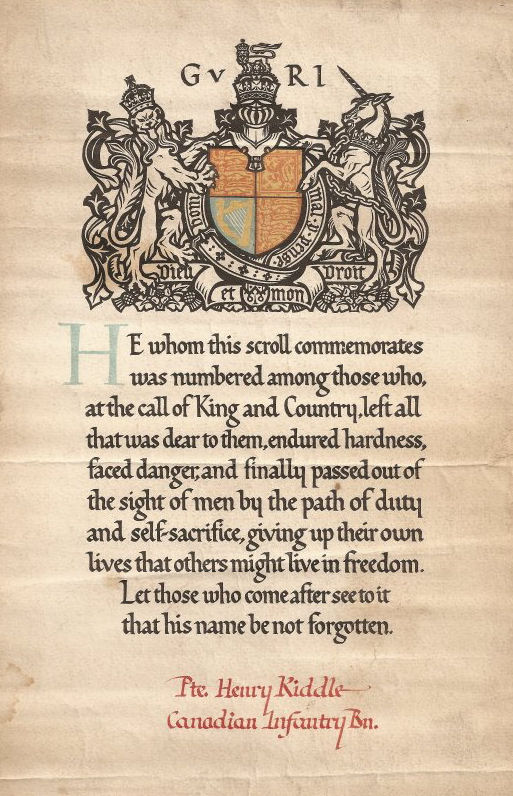 GV RI
Dieu et mon Droit
HE whom this scroll commemorates
was numbered among those who,
at the call of King and Country, left all
that was dear to them, endured hardness,
faced danger, and finally passed out of
the sight of men by the path of duty
and self-sacrifice, giving up their own
lives that others might live in freedom.
Let those who come after see to it
that his name be not forgotten.
Pte. Henry Kiddle
Canadian Infantry Bn.